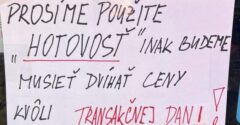 PROSÍME POUŽITE
"HOTOVOSŤ" INAK BUDEME
MUSIEŤ DVÍHAŤ CENY
KVÔLI TRANSAKČNEJ DANI!